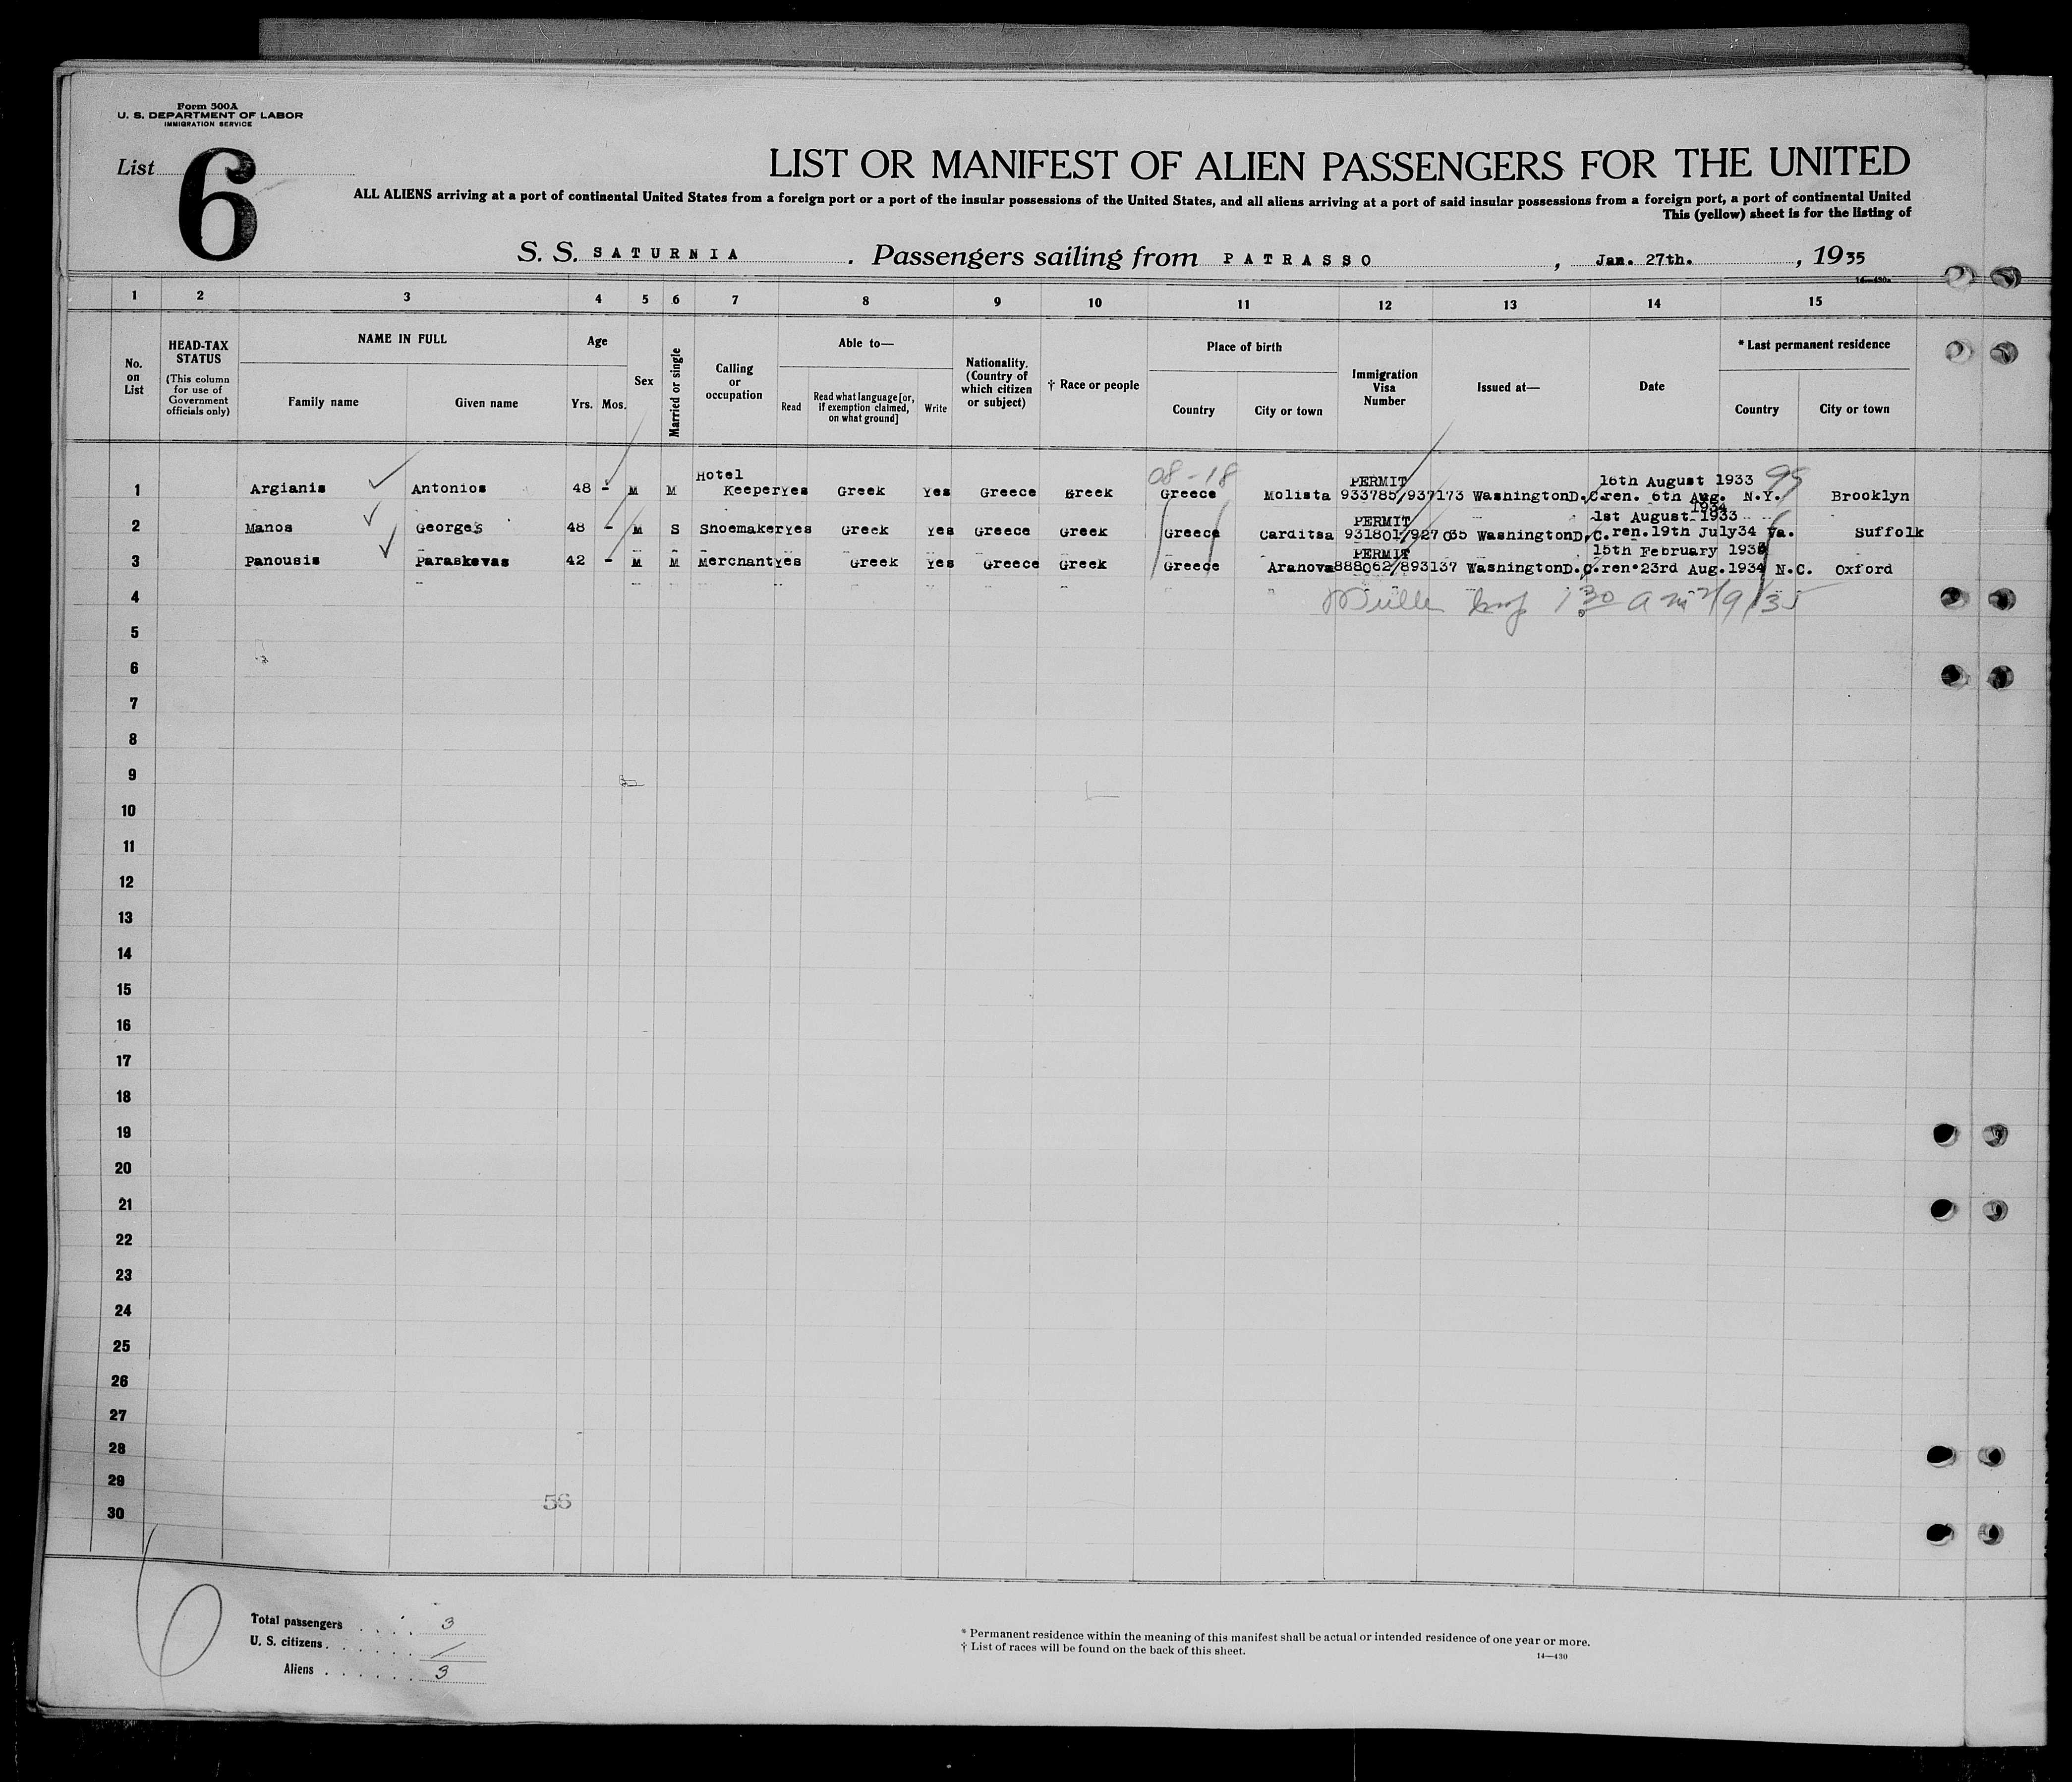 Form 500A
U. S. DEPARTMENT OF LABOR
IMMIGRATION SERVICE
List 6
LIST OR MANIFEST OF ALIEN PASSENGERS FOR THE UNITED
ALL ALIENS arriving at a port of continental United States from a foreign port or a port of the insular possessions of the United States, and all aliens arriving at a port of said insular possessions from a foreign port, a port of continental United
This (yellow) sheet is for the listing of
S. S. SATURNIA . Passengers sailing from PATRASSO , Jan. 27th. , 1935
14—430a
1 2 3 4 5 6 7 8 9 10 11 12 13 14 15
No. on List
HEAD-TAX STATUS (This column for use of Government officials only)
NAME IN FULL
Family name Given name
Age
Yrs. Mos.
Sex
Married or single
Calling or occupation
Able to—
Read
Read what language [or, if exemption claimed, on what ground]
Write
Nationality. (Country of which citizen or subject)
† Race or people
Place of birth
Country City or town
Immigration Visa Number
Issued at—
Date
* Last permanent residence
Country City or town
08-18 99
Hotel PERMIT 16th August 1933
1 Argianis Antonios 48 - M M Keeper Yes Greek Yes Greece Greek Greece Molista 933785/937173 Washington D.C. ren. 6th Aug. 1934 N.Y. Brooklyn
PERMIT 1st August 1933
2 Manos Georges 48 - M S Shoemaker Yes Greek Yes Greece Greek Greece Carditsa 931801/927035 Washington D.C. ren. 19th July 34 Va. Suffolk
PERMIT 15th February 1933
3 Panousis Paraskevas 42 - M M Merchant Yes Greek Yes Greece Greek Greece Aranova 888062/893137 Washington D.C. ren. 23rd Aug. 1934 N.C. Oxford
4 1 30 a m 2/9/35
5
6
7
8
9
10
11
12
13
14
15
16
17
18
19
20
21
22
23
24
25
26
27
28
29
56
30
6
Total passengers . . . . 3
U. S. citizens . . . . . . /
Aliens . . . . . . . 3
* Permanent residence within the meaning of this manifest shall be actual or intended residence of one year or more.
† List of races will be found on the back of this sheet.
14—430